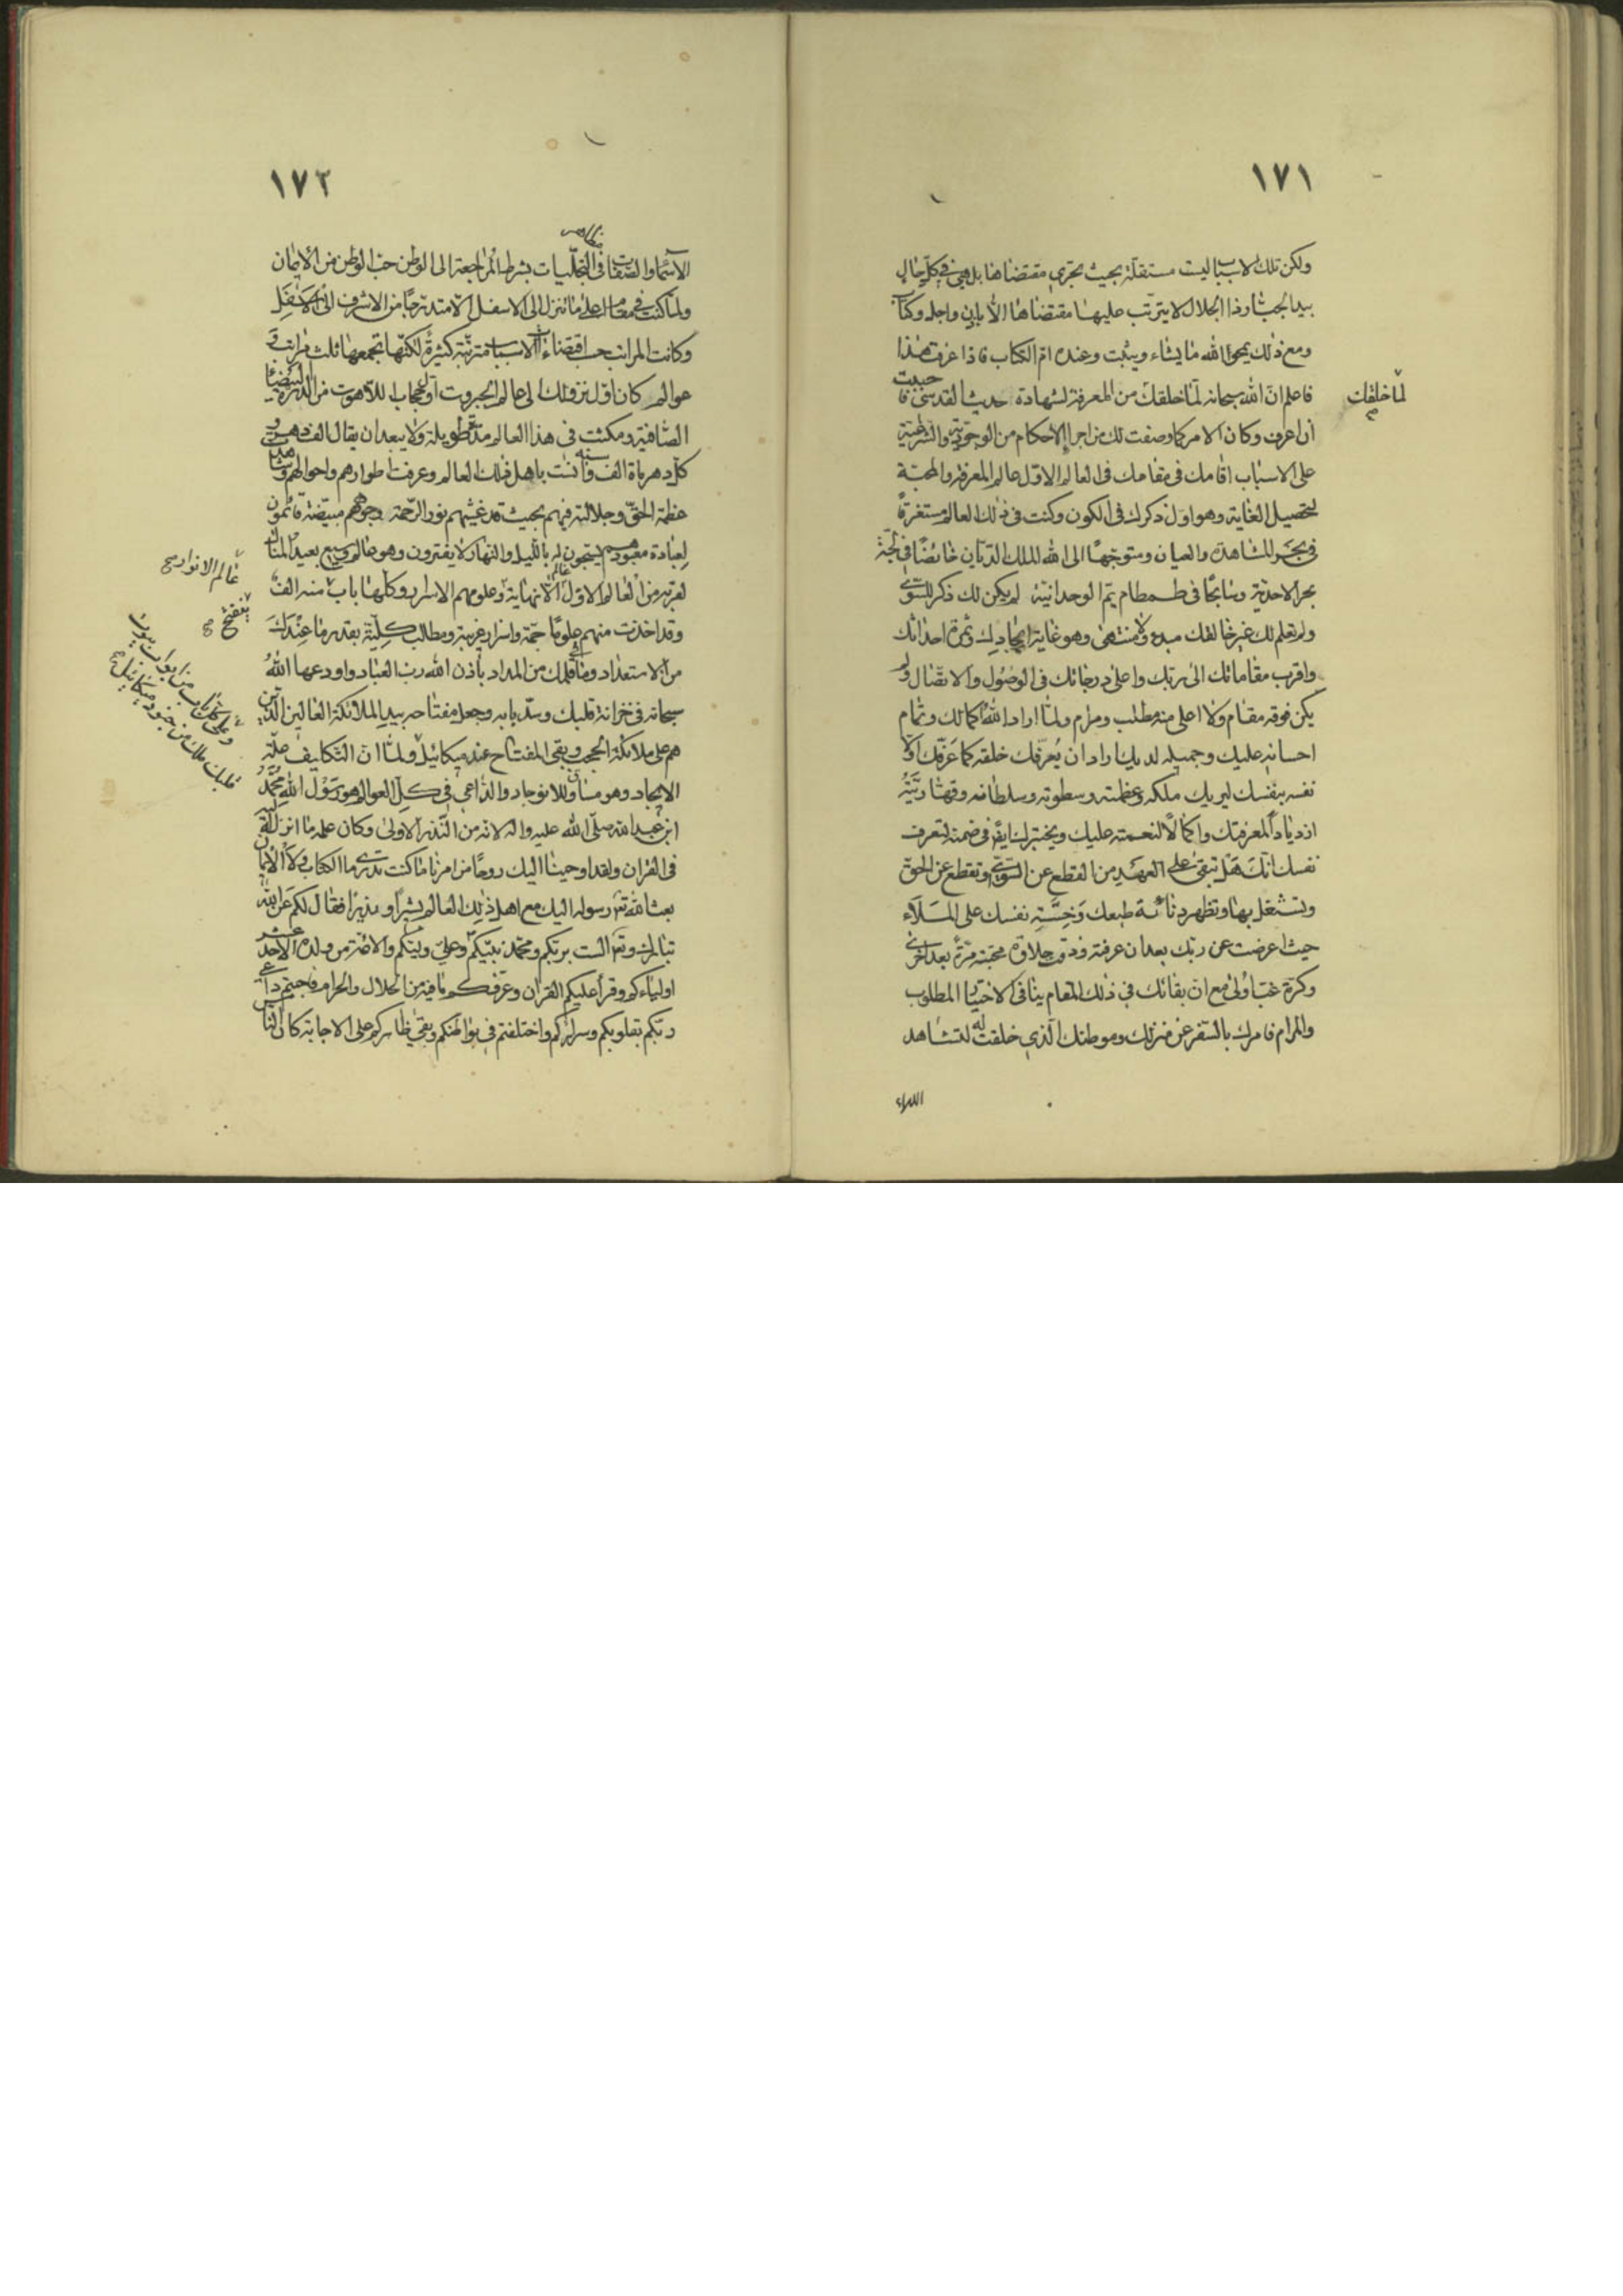 ١٧١
ولكن تلك الاسباب ليست مستقلة بحيث تجري مقتضاها بل هي في كل حال
بيد الجبار وذا الجلال لا يترتب عليها مقتضاها الا باذن واجل وكتاب
ومع ذلك يمحو الله ما يشاء ويثبت وعنده ام الكتاب فاذا عرفت هذا
فاعلم ان الله سبحانه لما خلقك من المعرفة لشهادة حديث القدسي فاحببت
لما خلقت
ان اعرف وكان الامر كما وصفت لك من اجراء الاحكام من الوجودية والشرعية
على الاسباب اقامك في مقامك في العالم الاول عالم المعرفة والمحبة
لتحصيل الغاية وهو اول ذكرك في الكون وكنت في ذلك العالم مستغرقا
في بحر المشاهدة والعيان ومتوجها الى الله الملك الديان خائضا في لجة
بحر الاحدية وسابحا في طمطام يم الوحدانية لم يكن لك ذكر للسوى
ولم تعلم لك غير خالقك مبدء ولا منتهى وهو غاية ايجادك وثمرة احداثك
واقرب مقاماتك الى ربك واعلى درجاتك في الوصول والاتصال ولم
يكن فوقه مقام ولا اعلى منه مطلب ومرام ولما اراد الله اكمالك وتمام
احسانه عليك وجميله لديك اراد ان يعرفك خلقه كما عرفك اولا
نفسه بنفسك ليريك ملكه وعظمته وسطوته وسلطانه وقهاريته
ازديادا لمعرفتك واكمالا لنعمته عليك ويختبرك ايضا في ضمنه لتعرف
نفسك انك هل تبقى على العهد من القطع عن السوى وتقطع عن الحق
وتشتغل بها وتظهر دنائة طبعك وخسة نفسك على الملاء
حيث اعرضت عن ربك بعد ان عرفته وذقت حلاوة محبته مرة بعد اخرى
وكرة غب اولى مع ان بقائك في ذلك المقام ينافي الاختيار المطلوب
والمرام فامرك بالسفر عن منزلك وموطنك الذي خلقت له لتشاهد
١٧٢
مظاهر
الاسماء والصفات في التجليات بشرط المراجعة الى الوطن حب الوطن من الايمان
ولما كنت في مقام اعلى ما تنزل الى الاسفل الا متدرجا من الاشرف الى الاسفل
وكانت المراتب حسب اقتضاء الاسباب مترتبة كثيرة لكنها تجمعها ثلث مراتب و
عوالم كان اول نزولك الى عالم الجبروت اول حجاب اللاهوت من الدرة البيضاء
الصافية ومكثت في هذا العالم مدة طويلة ولا يبعد ان يقال الف دهر و
كل دهر مائة الف سنة وانست باهل ذلك العالم وعرفت اطوارهم واحوالهم
عظمة الحق وجلالته فيهم بحيث قد غشيهم نور الرحمة وجوههم مبيضة قائمون
لعبادة معبودهم يسبحون له بالليل والنهار لا يفترون وهو عالم وسيع بعيد المنال
عالم الانوار صح
لقربه من العالم الاول عالم لا نهاية وعلومهم الاسرار وكلها باب منه الف
ينفتح صح
وقد اخذت منهم علوما جمة واسرار غريبة ومطالب كلية بقدر ما عندك
من الاستعداد وما في قلمك من المداد باذن الله رب العباد واودعها الله
سبحانه في خزانة قلبك وسد بابه وجعل مفتاحه بيد الملائكة العالين الذين
هم على ملائكة الحجب وبقي المفتاح عند ميكائيل ولما ان التكاليف علة
وعلى كل باب من ابواب بيوت
قلبك ملك من جنود ميكائيل صح
الايجاد وهو مساوق للانوجاد والداعي في كل العوالم هو رسول الله محمد
ابن عبد الله صلى الله عليه واله لانه من النذر الاولى وكان علمه ما انزل الله
في القران ولقد اوحينا اليك روحا من امرنا ما كنت تدري ما الكتاب ولا الايمان
بعث الله تعالى رسوله اليك مع اهل ذلك العالم بشيرا ونذيرا فقال لكم عن الله
تبارك وتعالى الست بربكم ومحمد نبيكم وعلي وليكم والائمة من ولده الاحد عشر
اولياءكم وقرأ عليكم القران وعرفكم ما فيه من الحلال والحرام فاجبتم داعي
ربكم بقلوبكم وسرائركم واختلفتم في بواطنكم وبقي ظاهركم على الاجابة كان الناس